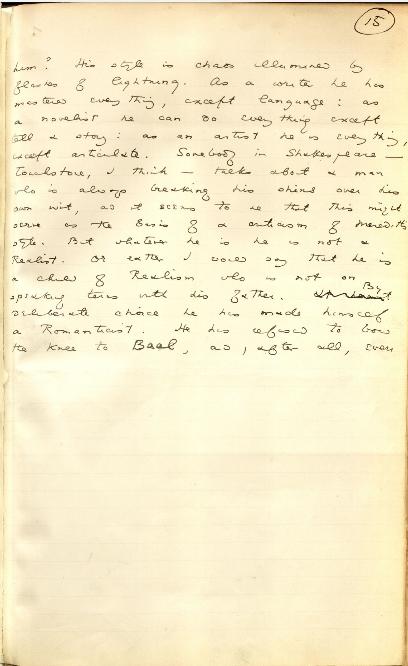 15
him? His style is chaos illumined by
flashes of lightning. As a writer he has
mastered everything, except language: as
a novelist he can do everything except
tell a story: as an artist he is everything,
except articulate. Somebody in Shakespeare —
Touchstone, I think — talks about a man
who is always breaking his shins over his
own wit, and it seems to me that this might
serve as the basis of a criticism of Meredith's
style. But whatever he is he is not a
Realist. Or rather I would say that he is
a child of Realism who is not on
speaking terms with his father. By
deliberate choice he has made himself
a Romanticist. He has refused to bow
the knee to Baal, and, after all, even